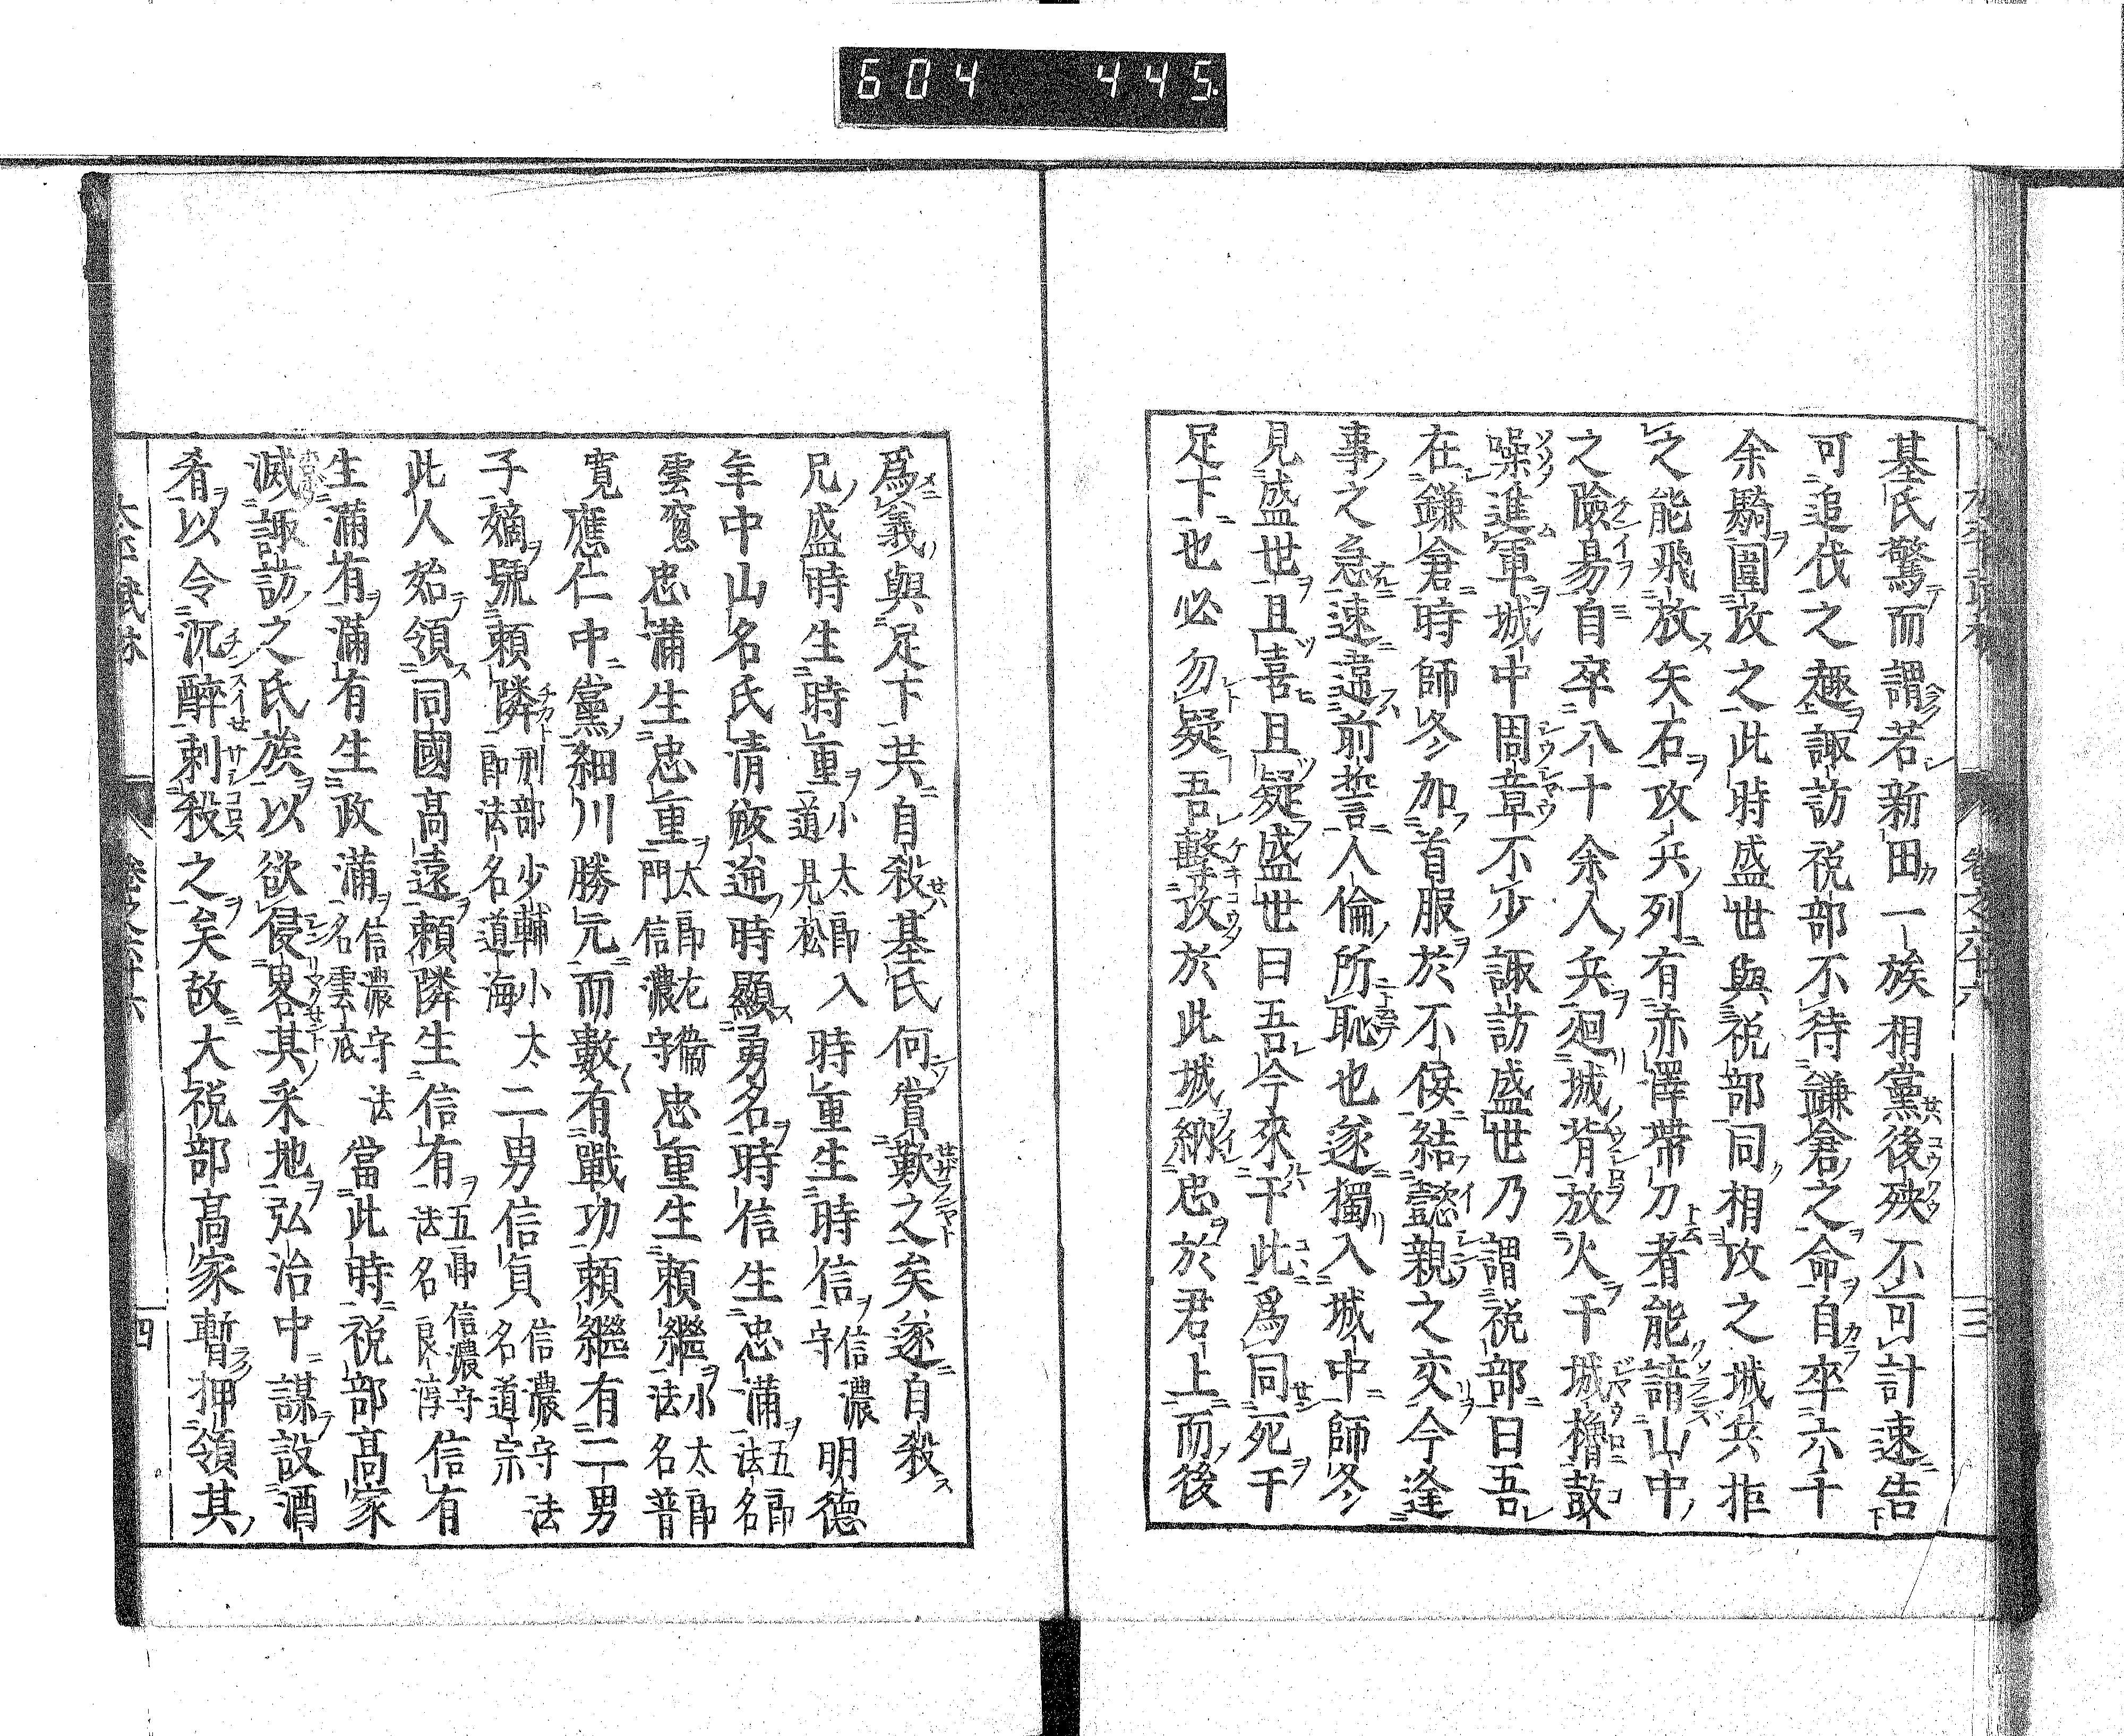 604 445.
基氏驚而謂若新田一族相黨後殃不可計速告
可追伐之趣諏訪祝部不待鎌倉之命自卒六千
余騎圍攻之此時盛世與祝部同相攻之城兵拒
之能飛放矢石攻兵列有赤澤帶刀者能諳山中
之險易自卒八十余人兵廻城背放火于城櫓鼓
噪進軍城中周章不少諏訪盛世乃謂祝部曰吾
在鎌倉時師冬加首服於不佞結懿親之交今逢
事之急速違前誓人倫所恥也遂獨入城中師冬
見盛世且喜且疑盛世曰吾今來于此爲同死于
足下也必勿疑吾擊攻於此城納忠於君上而後
卷之六十六
三
爲義與足下共自殺基氏何賞歎之矣遂自殺
兄盛時生時重小太郎入道見松時重生時信信濃守明德
年中山名氏清叛逆時顯勇名時信生忠滿五郎法名
雲窓忠滿生忠重太郎左衞門信濃守忠重生頼繼小太郎法名普
寬應仁中黨細川勝元而數有戰功頼繼有二男
子嫡號頼隣刑部少輔小太郎法名道海二男信貞信濃守法名道宗
此人始領同國高遠頼隣生信有五郎信濃守法名良淳信有
生滿有滿有生政滿信濃守法名雲底當此時祝部高家
滅諏訪之氏族以欲侵畧其釆地弘治中謀設酒
肴以令沉醉刺殺之矣故大祝部高家暫押領其
卷之六十六
四